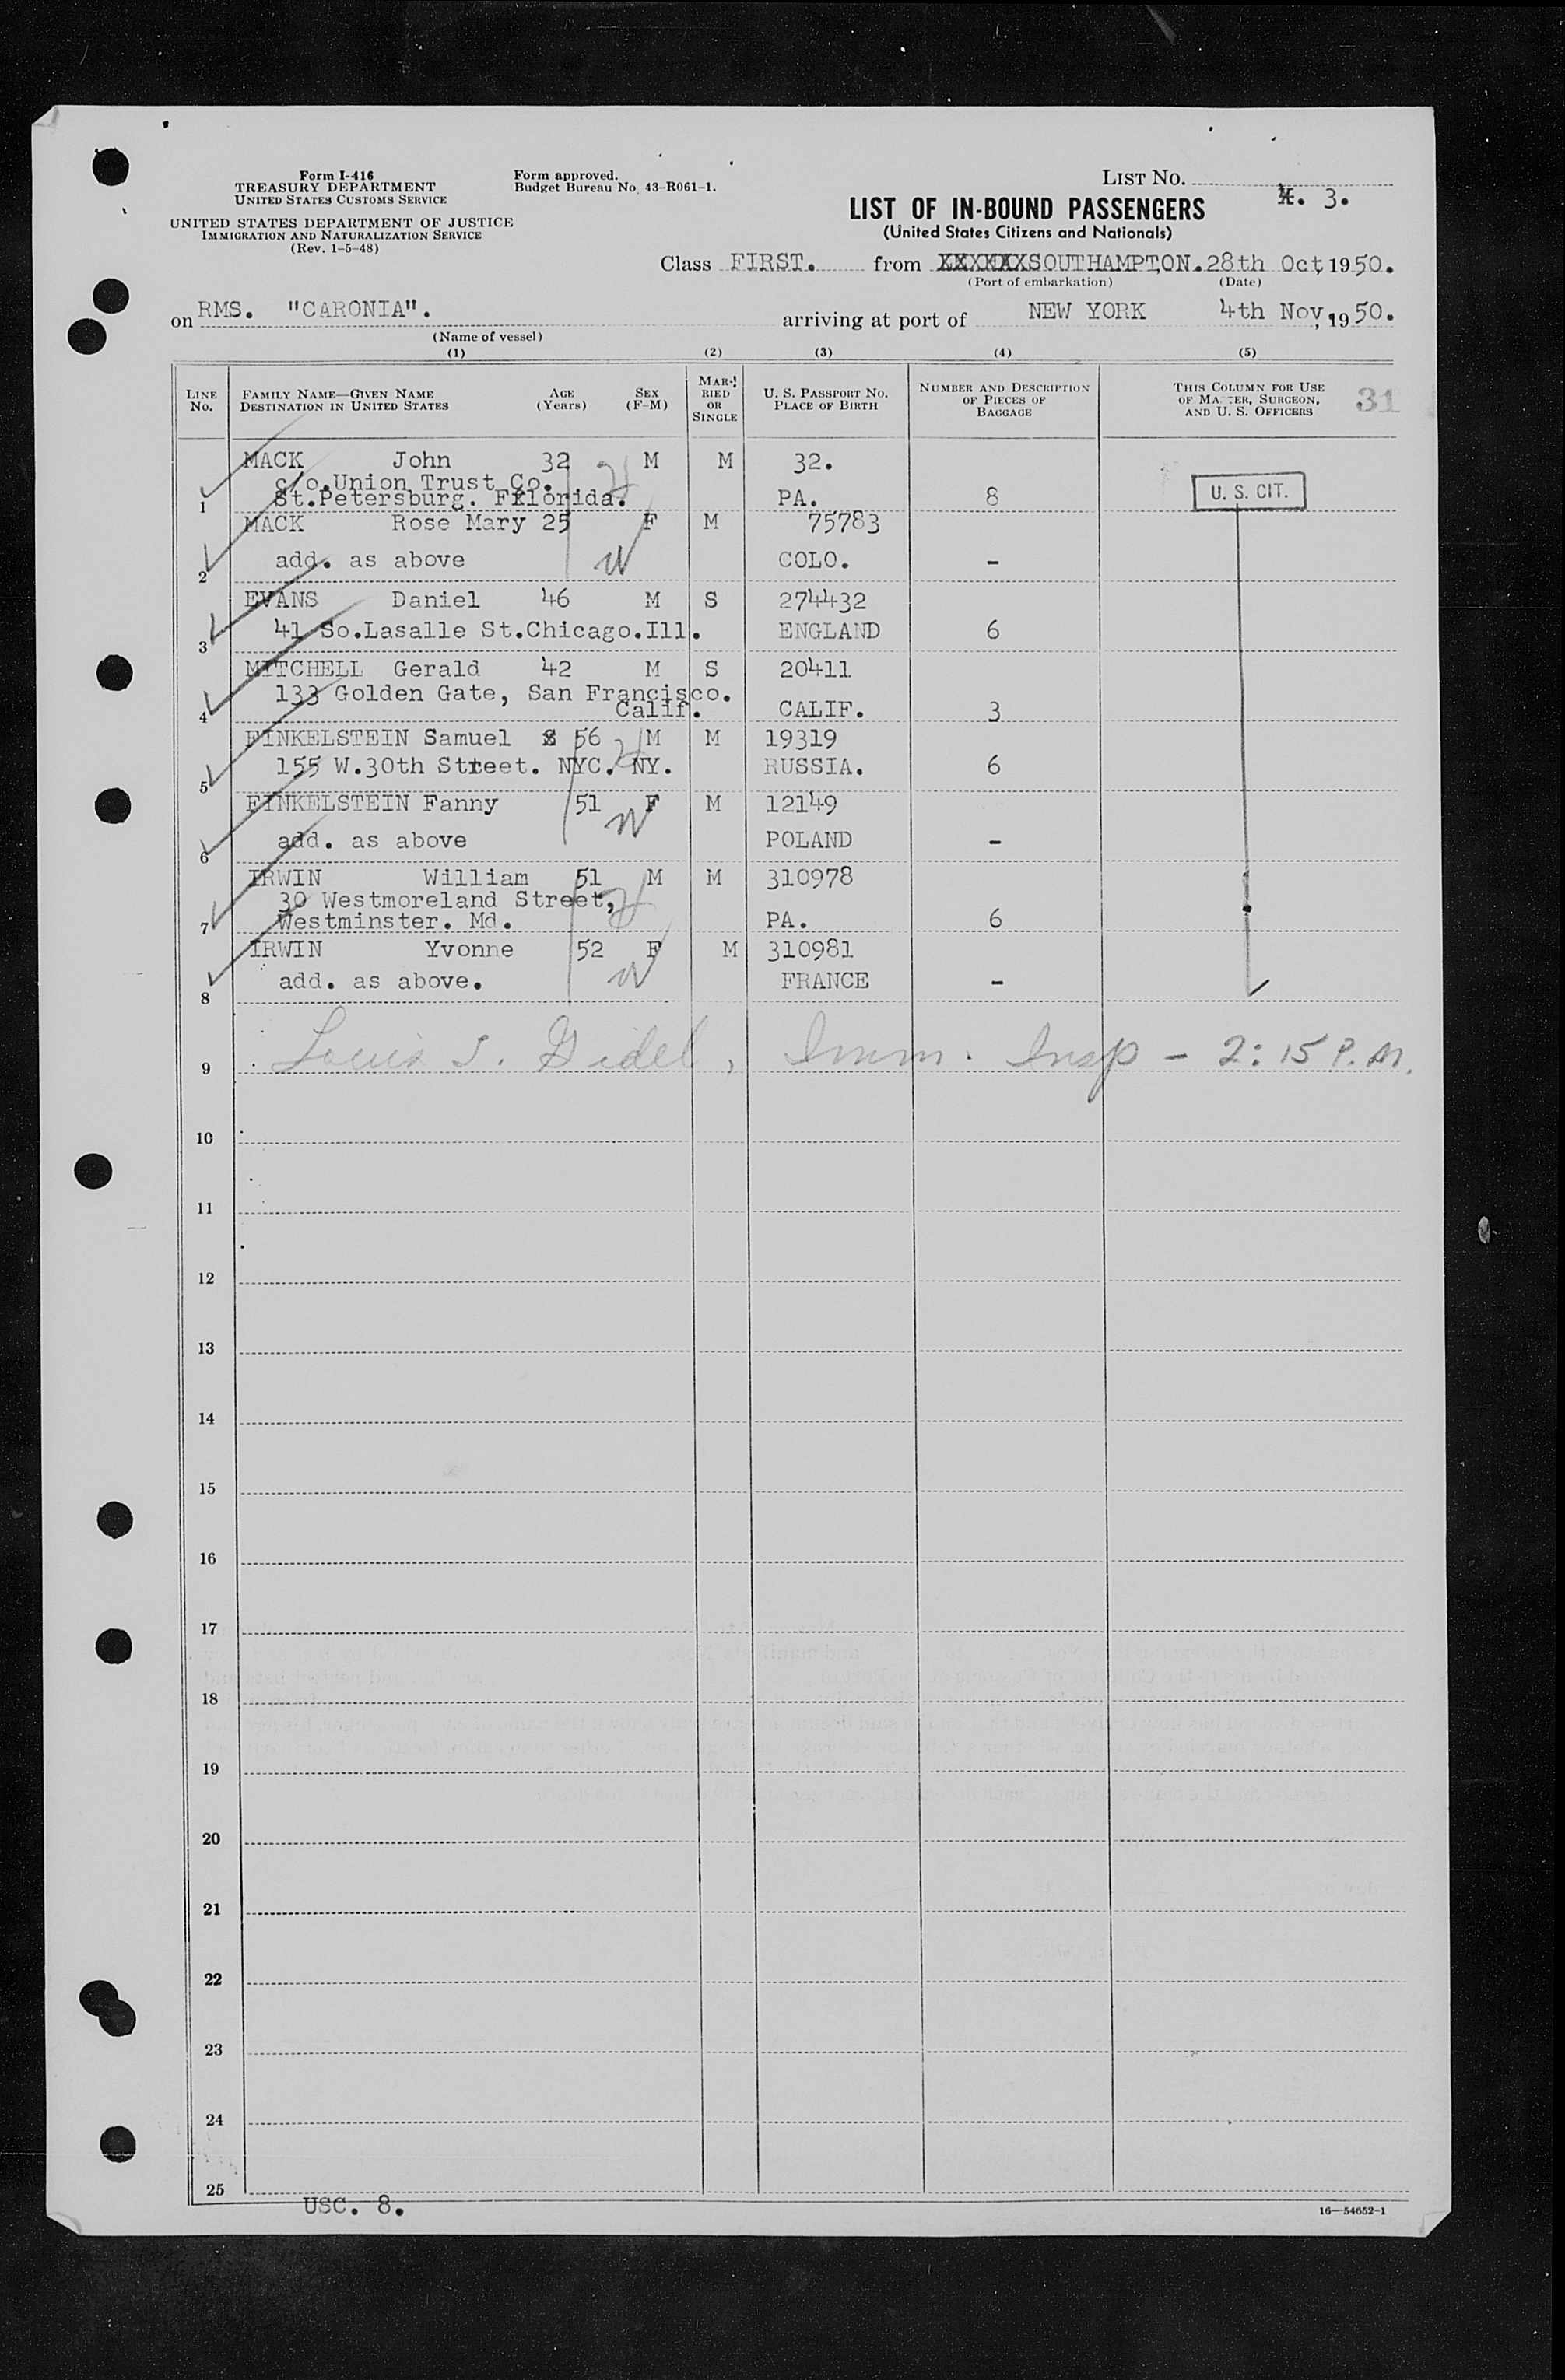 Form I-416
TREASURY DEPARTMENT
UNITED STATES CUSTOMS SERVICE
UNITED STATES DEPARTMENT OF JUSTICE
IMMIGRATION AND NATURALIZATION SERVICE
(Rev. 1-5-48)
Form approved.
Budget Bureau No. 43-R061-1.
LIST NO. 3.
LIST OF IN-BOUND PASSENGERS
(United States Citizens and Nationals)
Class FIRST. from SOUTHAMPTON. 28th Oct, 1950.
(Port of embarkation) (Date)
on RMS. "CARONIA". arriving at port of NEW YORK 4th Nov, 1950.
(Name of vessel)
(1) (2) (3) (4) (5)
LINE No. FAMILY NAME—GIVEN NAME DESTINATION IN UNITED STATES AGE (Years) SEX (F-M) MARRIED OR SINGLE U. S. PASSPORT NO. PLACE OF BIRTH NUMBER AND DESCRIPTION OF PIECES OF BAGGAGE THIS COLUMN FOR USE OF MASTER, SURGEON, AND U. S. OFFICERS 31
MACK John 32 M M 32.
c/o.Union Trust Co.
1 St.Petersburg. Fklorida. PA. 8 U. S. CIT.
MACK Rose Mary 25 F M 75783
2 add. as above W COLO. -
EVANS Daniel 46 M S 274432
3 41 So.Lasalle St.Chicago.Ill. ENGLAND 6
MITCHELL Gerald 42 M S 20411
133 Golden Gate, San Francisco.
4 Calif. CALIF. 3
FINKELSTEIN Samuel 56 M M 19319
5 155 W.30th Street. NYC. NY. RUSSIA. 6
FINKELSTEIN Fanny 51 F M 12149
6 add. as above W POLAND -
IRWIN William 51 M M 310978
30 Westmoreland Street,
7 Westminster. Md. PA. 6
IRWIN Yvonne 52 F M 310981
8 add. as above. W FRANCE -
9 Louis S. Gidel, Imm. Insp - 2:15 P.M.
10
11
12
13
14
15
16
17
18
19
20
21
22
23
24
25
USC. 8.
16—54652-1